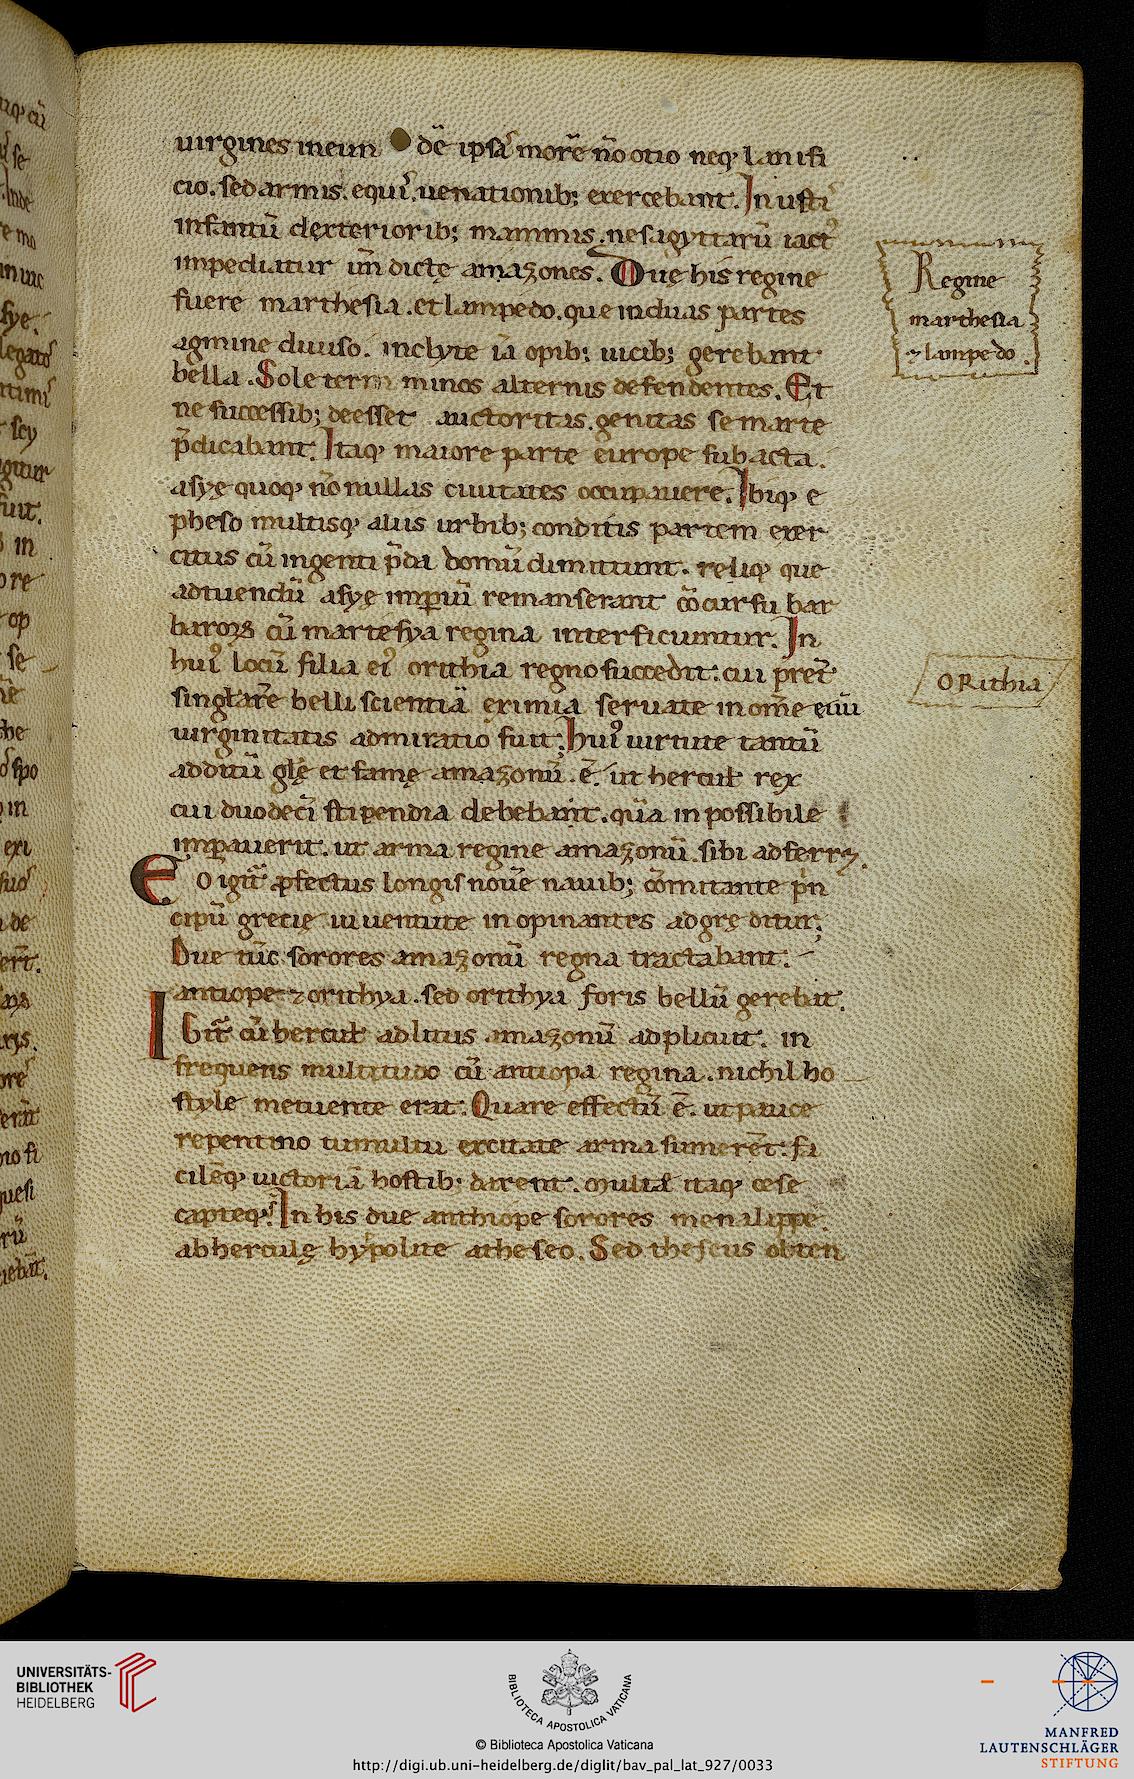 uirgines ineun dē ipsā morē nō otio neq; lanifi
cio. sed armis. equis. uenationib; exercebant. Inusti
infantū dexteriorib; mammis. ne sagyttarū iact᾽
impediatur un̄ dictę amazones. Duę his regine
fuere marthesia. et lampedo. que in duas partes
agmine diuiso. inclyte iā opib; uicib; gerebant
bella. Sole term minos alternis defendentes. Et
ne successib; deesset auctoritas. genitas se marte
p̄dicabant. Itaq; maiore parte europe subacta.
asyę quoq; nōnullas ciuitates occupauere. Ibiq; e
pheso multisq; aliis urbib; conditis partem exer
citus cū ingenti p̄da domū dimittunt. reliq; que
adtuendū asyę imp̱iū remanserant cōcursu bar
baroꝝ cū martesya regina interficiuntur. In
hui᾽ locū filia ei᾽ orithia regno succedit. cui pret̄
singłarē belli scientiā eximia seruate in om̄e eiū
uirginitatis admiratio fuit. hui᾽ uirtute tantū
additū glę et famę amazonū. ē. ut hercuł rex
cui duodeci stipendia debebant. quā inpossibile
imp̱auerit. ut arma regine amazonū sibi ad ferrꝫ.
Eo igit̄ p̱fectus longis nouē nauib; cōmitante prin
cipū gretię iuuentute inopinantes adgrę ditur;
Due tūc sorores amazonū regna tractabant.
antiope ⁊ orithya. sed orithya foris bellū gerebat.
Igit̄ cū hercuł ad litus amazonū adplicuit. in
frequens multitudo cū antiopa regina. nichil ho
style metuente erat. Quare effectū ē. ut pauce
repentino tumultu excitate arma sumerēt. fa
cilēq; uictoriā hostib; darent. itaq; cese
capteq;. In his due anthiope sorores menalippe
ab herculę hypolite a theseo. Sed theseus obten
Regine
marthesia
⁊ lampedo.
ORithia
UNIVERSITÄTS-
BIBLIOTHEK
HEIDELBERG
BIBLIOTECA APOSTOLICA VATICANA
© Biblioteca Apostolica Vaticana
http://digi.ub.uni-heidelberg.de/diglit/bav_pal_lat_927/0033
MANFRED
LAUTENSCHLÄGER
STIFTUNG